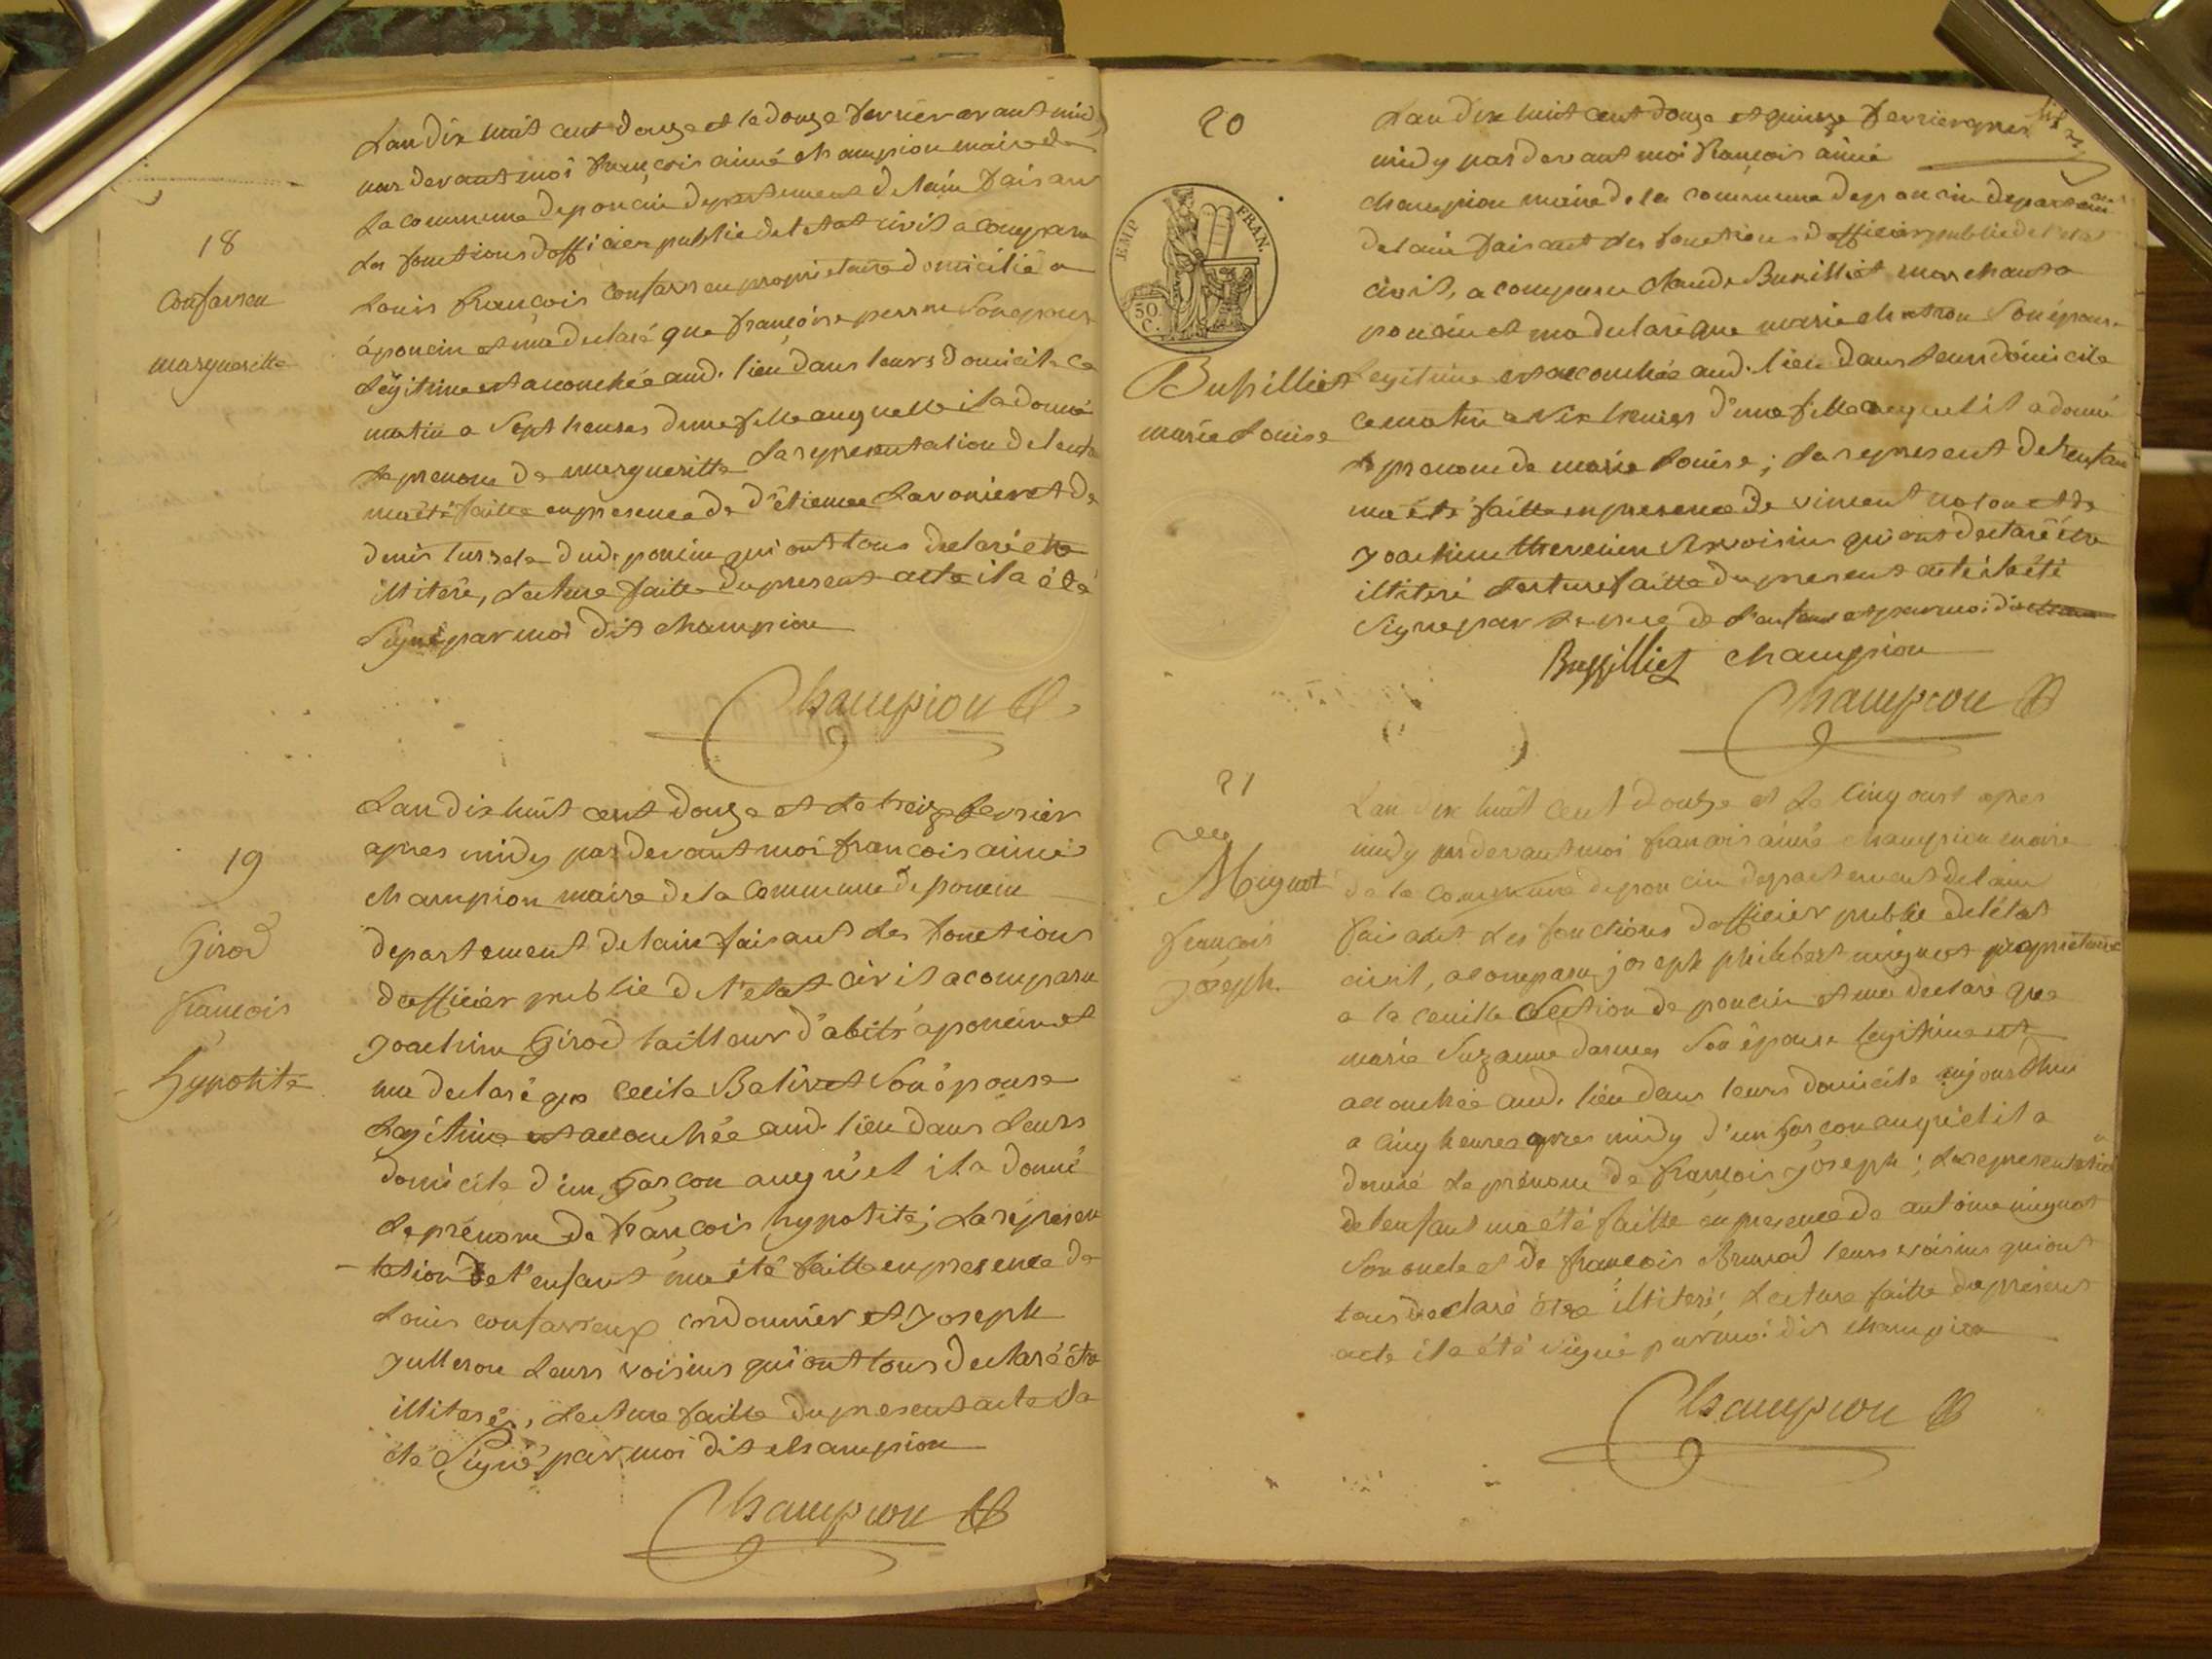 18
Confavreu
margueritte
Lan dix huit cent douze et le douze fevrier avant midy
par devant moi françois aimé champion maire de
la commune de poncin departement de lain faisant
les fonctions dofficier public de letat civil a comparu
Louis françois confavreu proprietaire domicilié a
à poncin et ma declaré que françoise son epouse
légitime est accouchée aud. lieu dans leurs domicile ce
matin a Sept heures dune fille auquelle il a donné
le prenom de margueritte La representation de lenfan
ma été faitte en presence de d'étienne Lavonier et de
denis dud. poncin qui ont tous declaré etre
illitéré, Lecture faitte du present acte il a été
Signé par moi dit champion
Champion
19
Girod
françois
hypolite
Lan dix huit cent douze et le treize fevrier
apres midy par devant moi francois aimé
champion maire de la commune de poncin
departement de lain faisant les fonctions
dofficier public de l'etat civil a comparu
Joachim Girod tailleur d'abits a poncin et
ma declaré que Cecile Balivet Son épouse
Legitime est accouchée aud. lieu dans Leurs
domicile d'un garçon auquel il a donné
le prénom de françois hypolite; La represen
tation de l'enfant ma été faitte en presence de
Louis confavreux cordonnier et Joseph
Julleron Leurs voisins qui ont tous declaré étre
illiterés, Lecture faitte du present acte il a
été Signé par moi dit champion
Champion
20
EMP FRAN.
50 C.
Bussilliet
marie Louise
Lan dix huit cent douze et quinze fevrier apres
midy par devant moi francois aimé
champion maire de la commune de poncin departem
de lain faisant les fonctions dofficier public de letat
civil, a comparu claude Bussilliet marchant a
poncin et ma declaré que marie chatron Son épouse
Legitime est accouchée aud. lieu dans leurs domicile
ce matin a Six heures d'une fille auquel il a donné
le prenom de marie Louise; La represent de lenfan
ma été faitte en presence de vincent noton et de
Joachim thevenin Ses voisins qui ont declaré étre
illiteré Lecture faitte du present acte il a été
Signé par le pere de l'enfant et par moi dit
Bussilliet champion
Champion
21
Mignot
francois
Joseph.
Lan dix huit cent douze et le Cinq oust apres
midy par devant moi francois aimé champion maire
de la commune de poncin departement de lain
faisant les fonctions dofficier public de létat
civil, a comparu joseph philibert mignot proprietaire
a la ceuille Section de poncin et ma declaré que
marie Suzanne darmes Son épouse legitime est
accouchée aud. lieu dans leurs domicile aujourdhui
a cinq heures apres midy d'un garçon auquel il a
donné le prénom de françois Joseph; La representation
de lenfant ma été faitte en presence de antoine mignot
Son oncle et de françois Brunod leurs voisins qui ont
tous declaré étre illiteré; Lecture faitte du present
acte il a été signé par moi dit champion
Champion